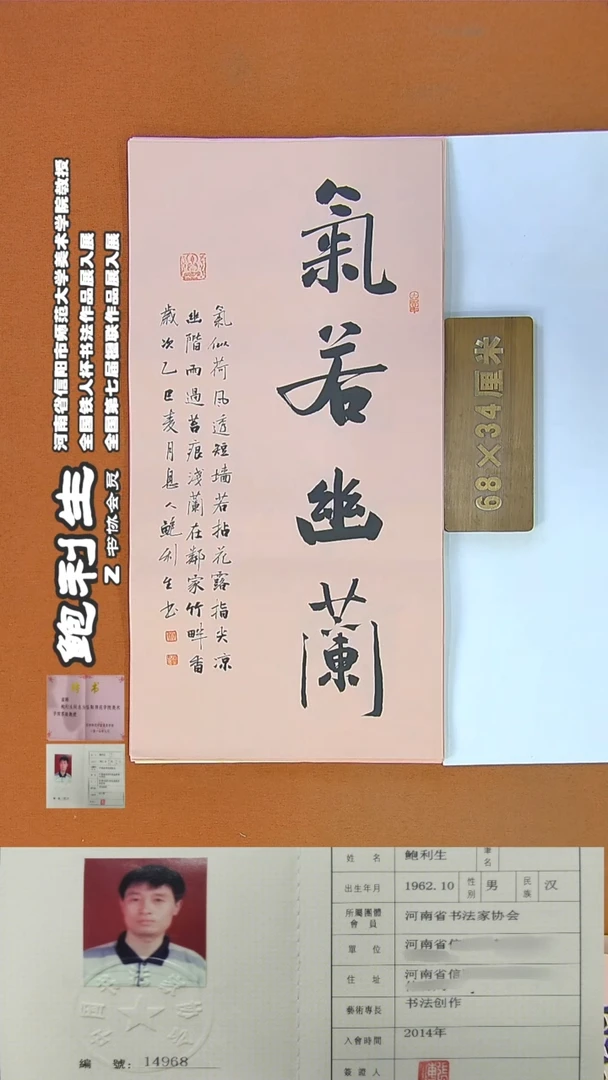 氣若幽蘭
氣似荷風透短墙若拈花露指尖凉
幽階雨過苔痕淺蘭在鄰家竹畔香
歲次乙巳麦月息人鲍利生书
68×34厘米
河南省信阳市师范大学美术学院教授
全国铁人杯书法作品展入展
全国第七届楹联作品展入展
鲍利生
Z 书协会员
聘书
姓 名 鲍利生 筆名
出生年月 1962.10 性别 男 民族 汉
所屬團體會員 河南省书法家协会
單 位 河南省信
住 址 河南省信
藝術專長 书法创作
入會時間 2014年
簽證人
編 號: 14968